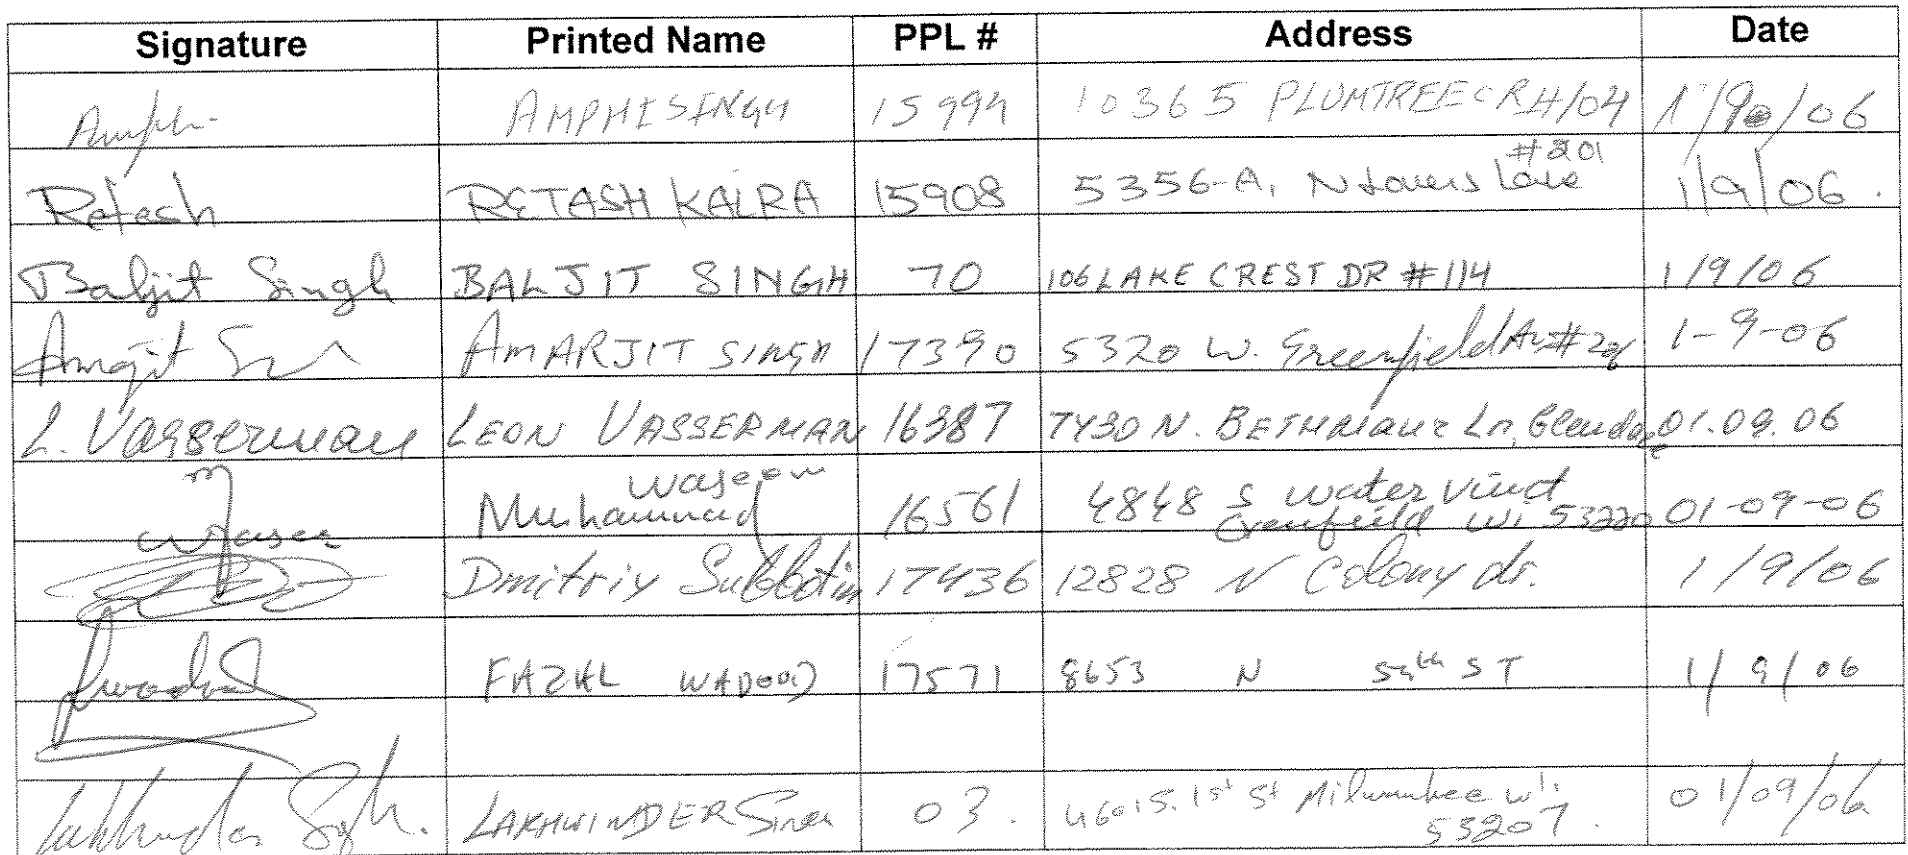 Signature Printed Name PPL # Address Date
AMPHI SINGH 15994 10365 PLUMTREE CR #104 1/9/06
Retash RETASH KALRA 15908 5356-A, N Lovers Lane #201 1/9/06.
Baljit Singh BALJIT SINGH 70 106 LAKE CREST DR #114 1/9/06
Amrajit AMARJIT SINGH 17390 5320 W. Greenfield Av #206 1-9-06
L. Vasserman LEON VASSERMAN 16387 7430 N. Ln, Glendale 01.09.06
Waseem
Muhammad 16561 4848 S water
Greenfield Wi 53220 01-09-06
Dmitriy Subbotin 17436 12828 N Colony dr. 1/9/06
FAZAL WADOOD 17571 8653 N 54th ST 1/9/06
LAKHWINDER Singh 03. 4601 S. 1st St Milwaukee wi. 01/09/06
53207.